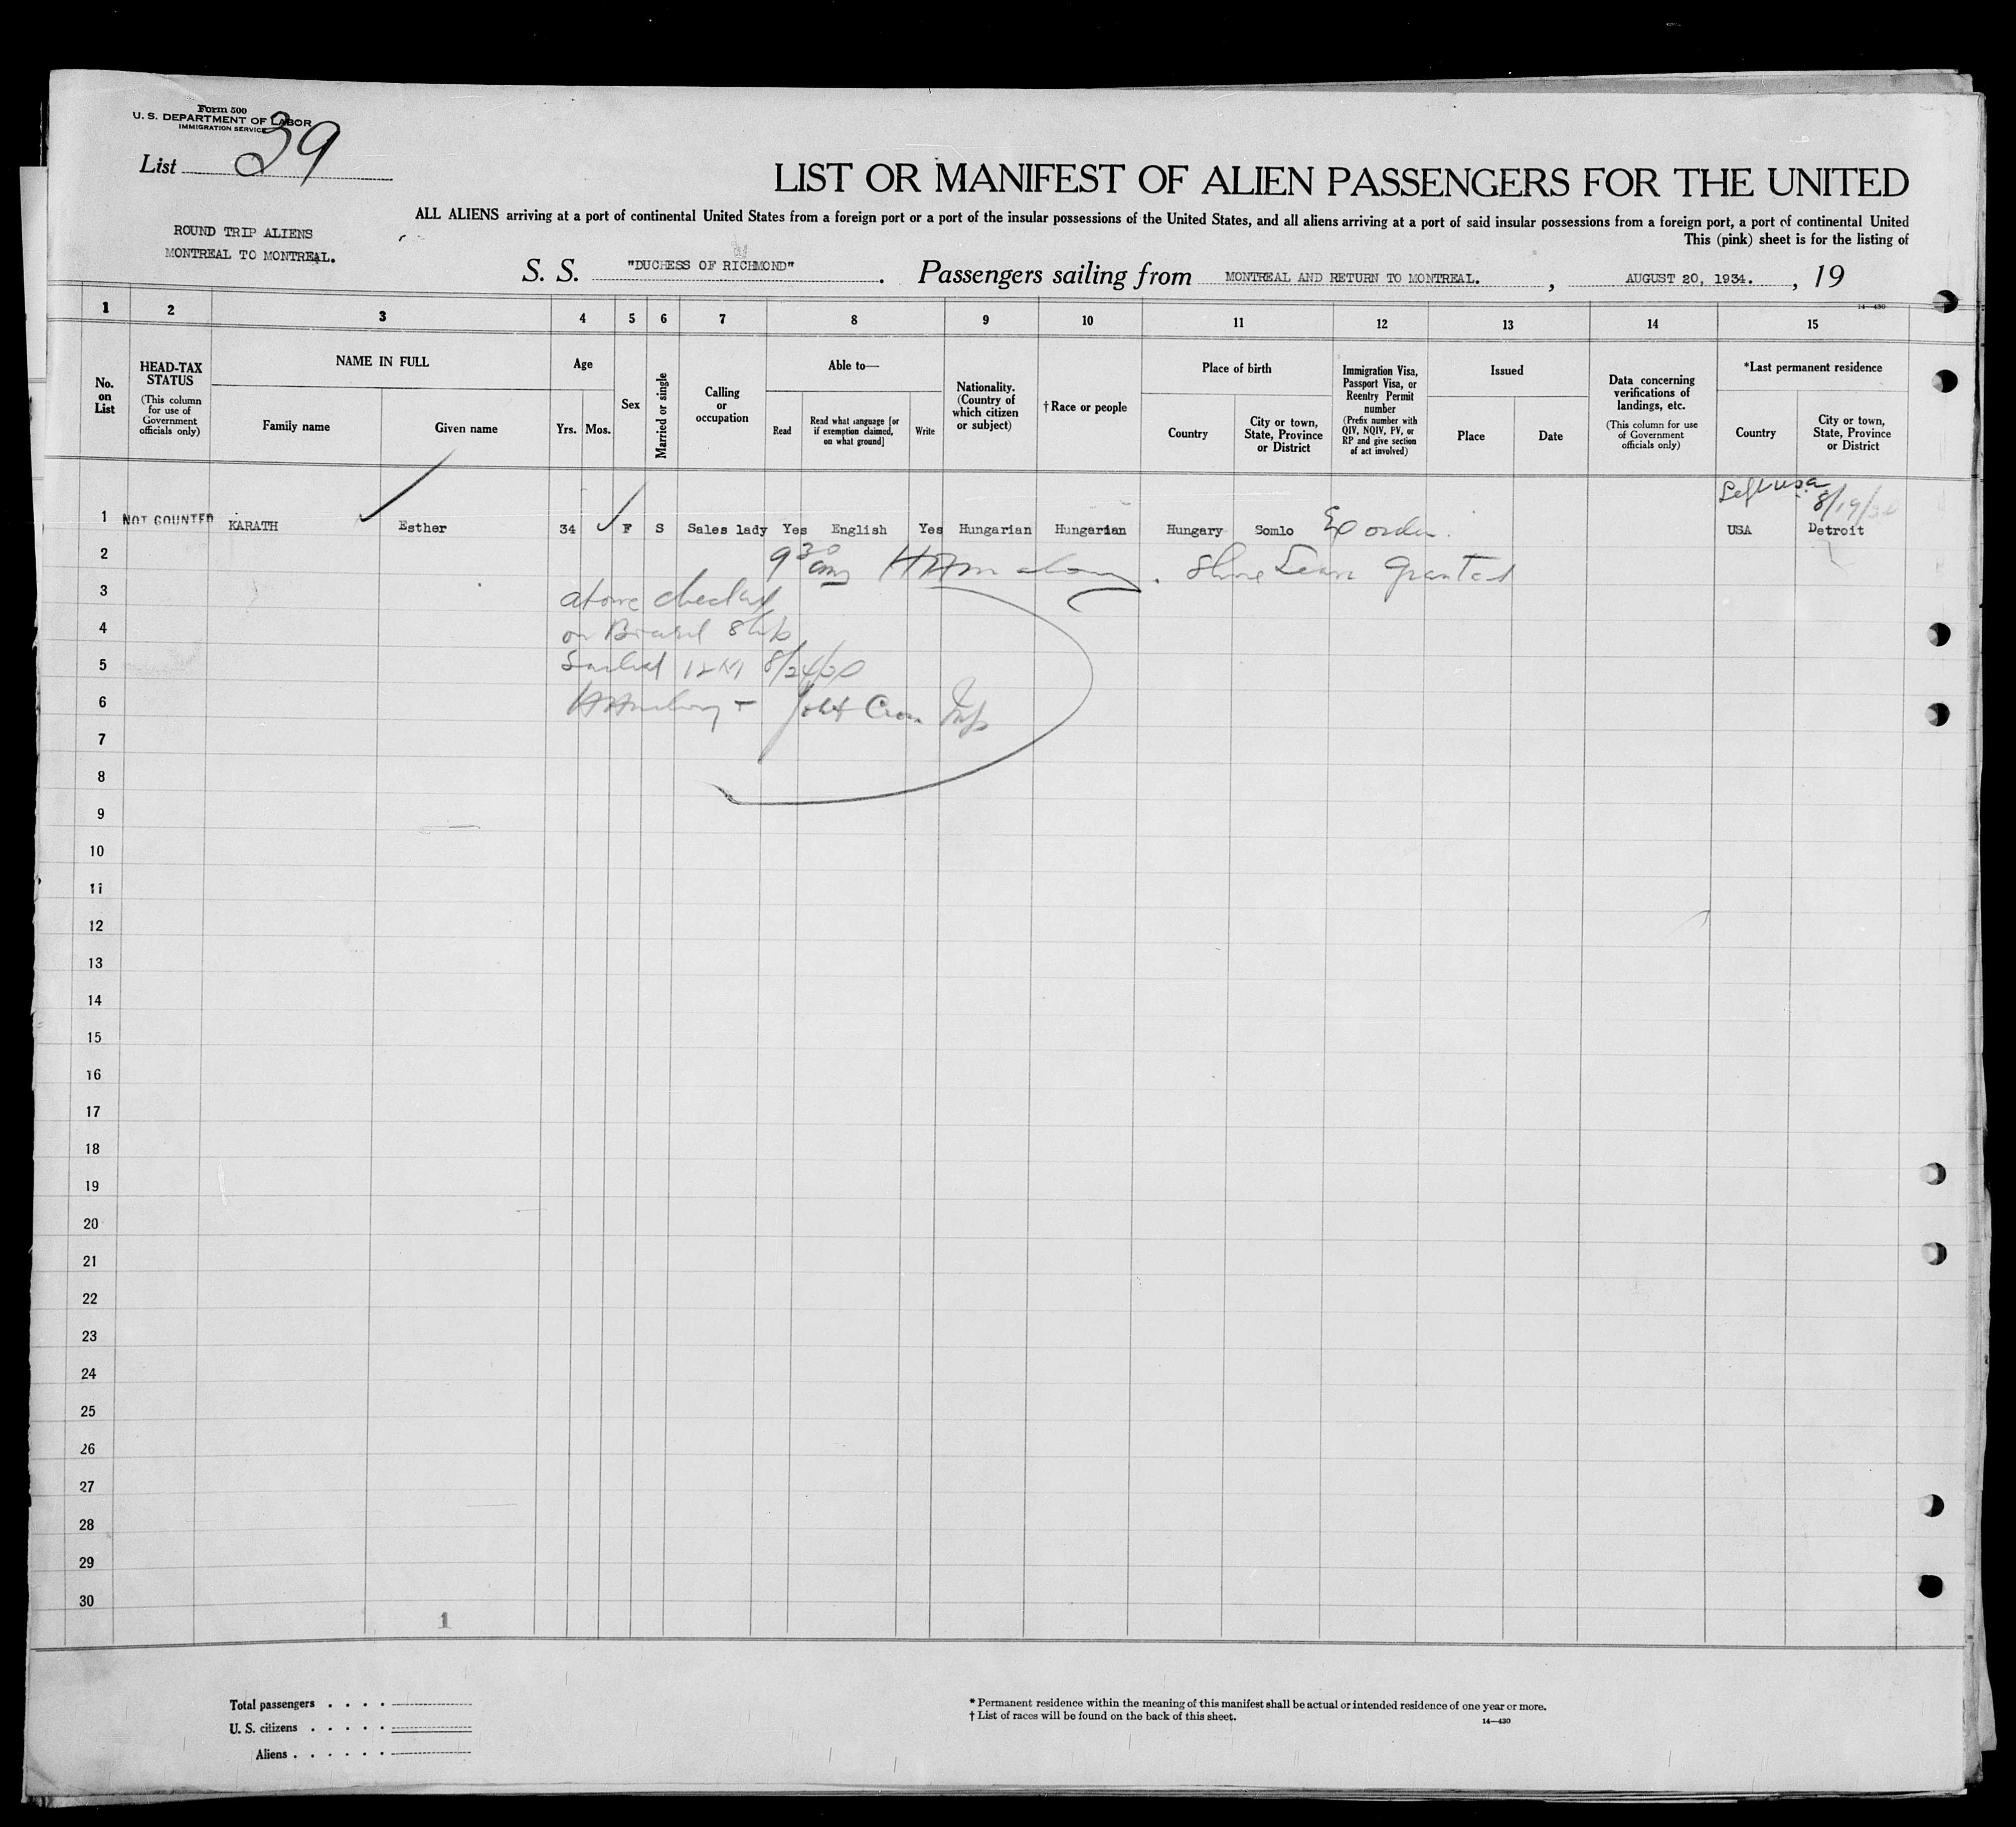 Form 500
U. S. DEPARTMENT OF LABOR
IMMIGRATION SERVICE
List 39
LIST OR MANIFEST OF ALIEN PASSENGERS FOR THE UNITED
ALL ALIENS arriving at a port of continental United States from a foreign port or a port of the insular possessions of the United States, and all aliens arriving at a port of said insular possessions from a foreign port, a port of continental United
This (pink) sheet is for the listing of
ROUND TRIP ALIENS
MONTREAL TO MONTREAL.
S. S. "DUCHESS OF RICHMOND". Passengers sailing from MONTREAL AND RETURN TO MONTREAL. , AUGUST 20, 1934. , 19
14—430
1 2 3 4 5 6 7 8 9 10 11 12 13 14 15
No. on List
HEAD-TAX STATUS
(This column for use of Government officials only)
NAME IN FULL
Family name
Given name
Age
Yrs. Mos.
Sex
Married or single
Calling or occupation
Able to—
Read
Read what language [or if exemption claimed, on what ground]
Write
Nationality. (Country of which citizen or subject)
† Race or people
Place of birth
Country
City or town, State, Province or District
Immigration Visa, Passport Visa, or Reentry Permit number
(Prefix number with QIV, NQIV, PV, or RP and give section of act involved)
Issued
Place
Date
Data concerning verifications of landings, etc.
(This column for use of Government officials only)
*Last permanent residence
Country
City or town, State, Province or District
Left usa 8/19/
1 NOT COUNTED KARATH Esther 34 F S Sales lady Yes English Yes Hungarian Hungarian Hungary Somlo Ex order. USA Detroit
2 9 30 am Shore Leave Granted
3 above checked
4 on Board Ship
5 Sailed 12 M 8/24/
6 Insp
7
8
9
10
11
12
13
14
15
16
17
18
19
20
21
22
23
24
25
26
27
28
29
30
1
Total passengers . . . .
U. S. citizens . . . . .
Aliens . . . . . .
* Permanent residence within the meaning of this manifest shall be actual or intended residence of one year or more.
† List of races will be found on the back of this sheet.
14—430